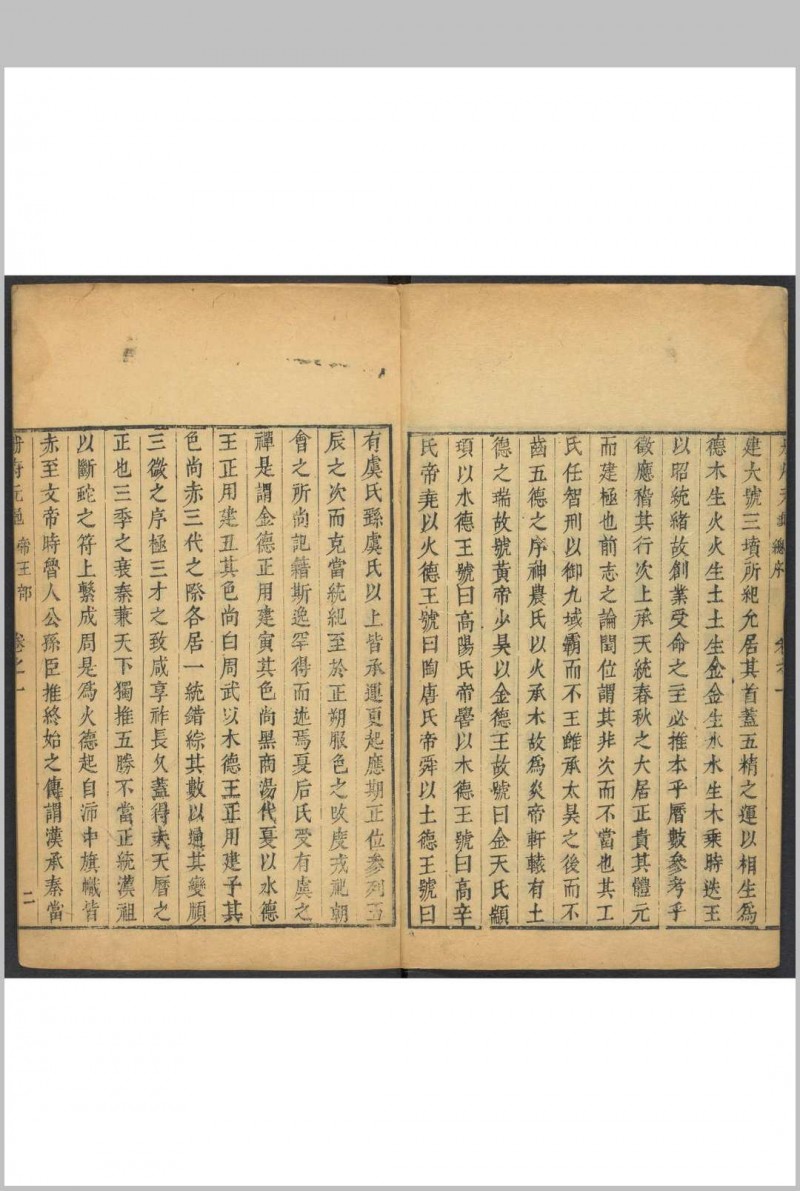 總序
建大號三墳所紀允居其首蓋五精之運以相生爲
德木生火火生土土生金金生水水生木乘時迭王
以昭統緒故創業受命之主必推本乎曆數參考乎
徵應稽其行次上承天統春秋之大居正貴其體元
而建極也前志之論閏位謂其非次而不當也共工
氏任智刑以御九域霸而不王雖承太昊之後而不
齒五德之序神農氏以火承木故爲炎帝軒轅有土
德之瑞故號黃帝少昊以金德王故號曰金天氏顓
頊以水德王號曰高陽氏帝嚳以木德王號曰高辛
氏帝堯以火德王號曰陶唐氏帝舜以土德王號曰
有虞氏繇虞氏以上皆承運更起應期正位參列五
辰之次而克當統紀至於正朔服色之改度戎祀朝
會之所尚記籍斯逸罕得而述焉夏后氏受有虞之
禪是謂金德正用建寅其色尚黑商湯代夏以水德
王正用建丑其色尚白周武以木德王正用建子其
色尚赤三代之際各居一統錯綜其數以通其變順
三微之序極三才之致咸享祚長久蓋得夫天曆之
正也三季之衰秦兼天下獨推五勝不當正統漢祖
以斷蛇之符上繫成周是爲火德起自沛中旗幟皆
赤至文帝時魯人公孫臣推終始之傳謂漢承秦當
冊府元龜 帝王部 卷之一 二